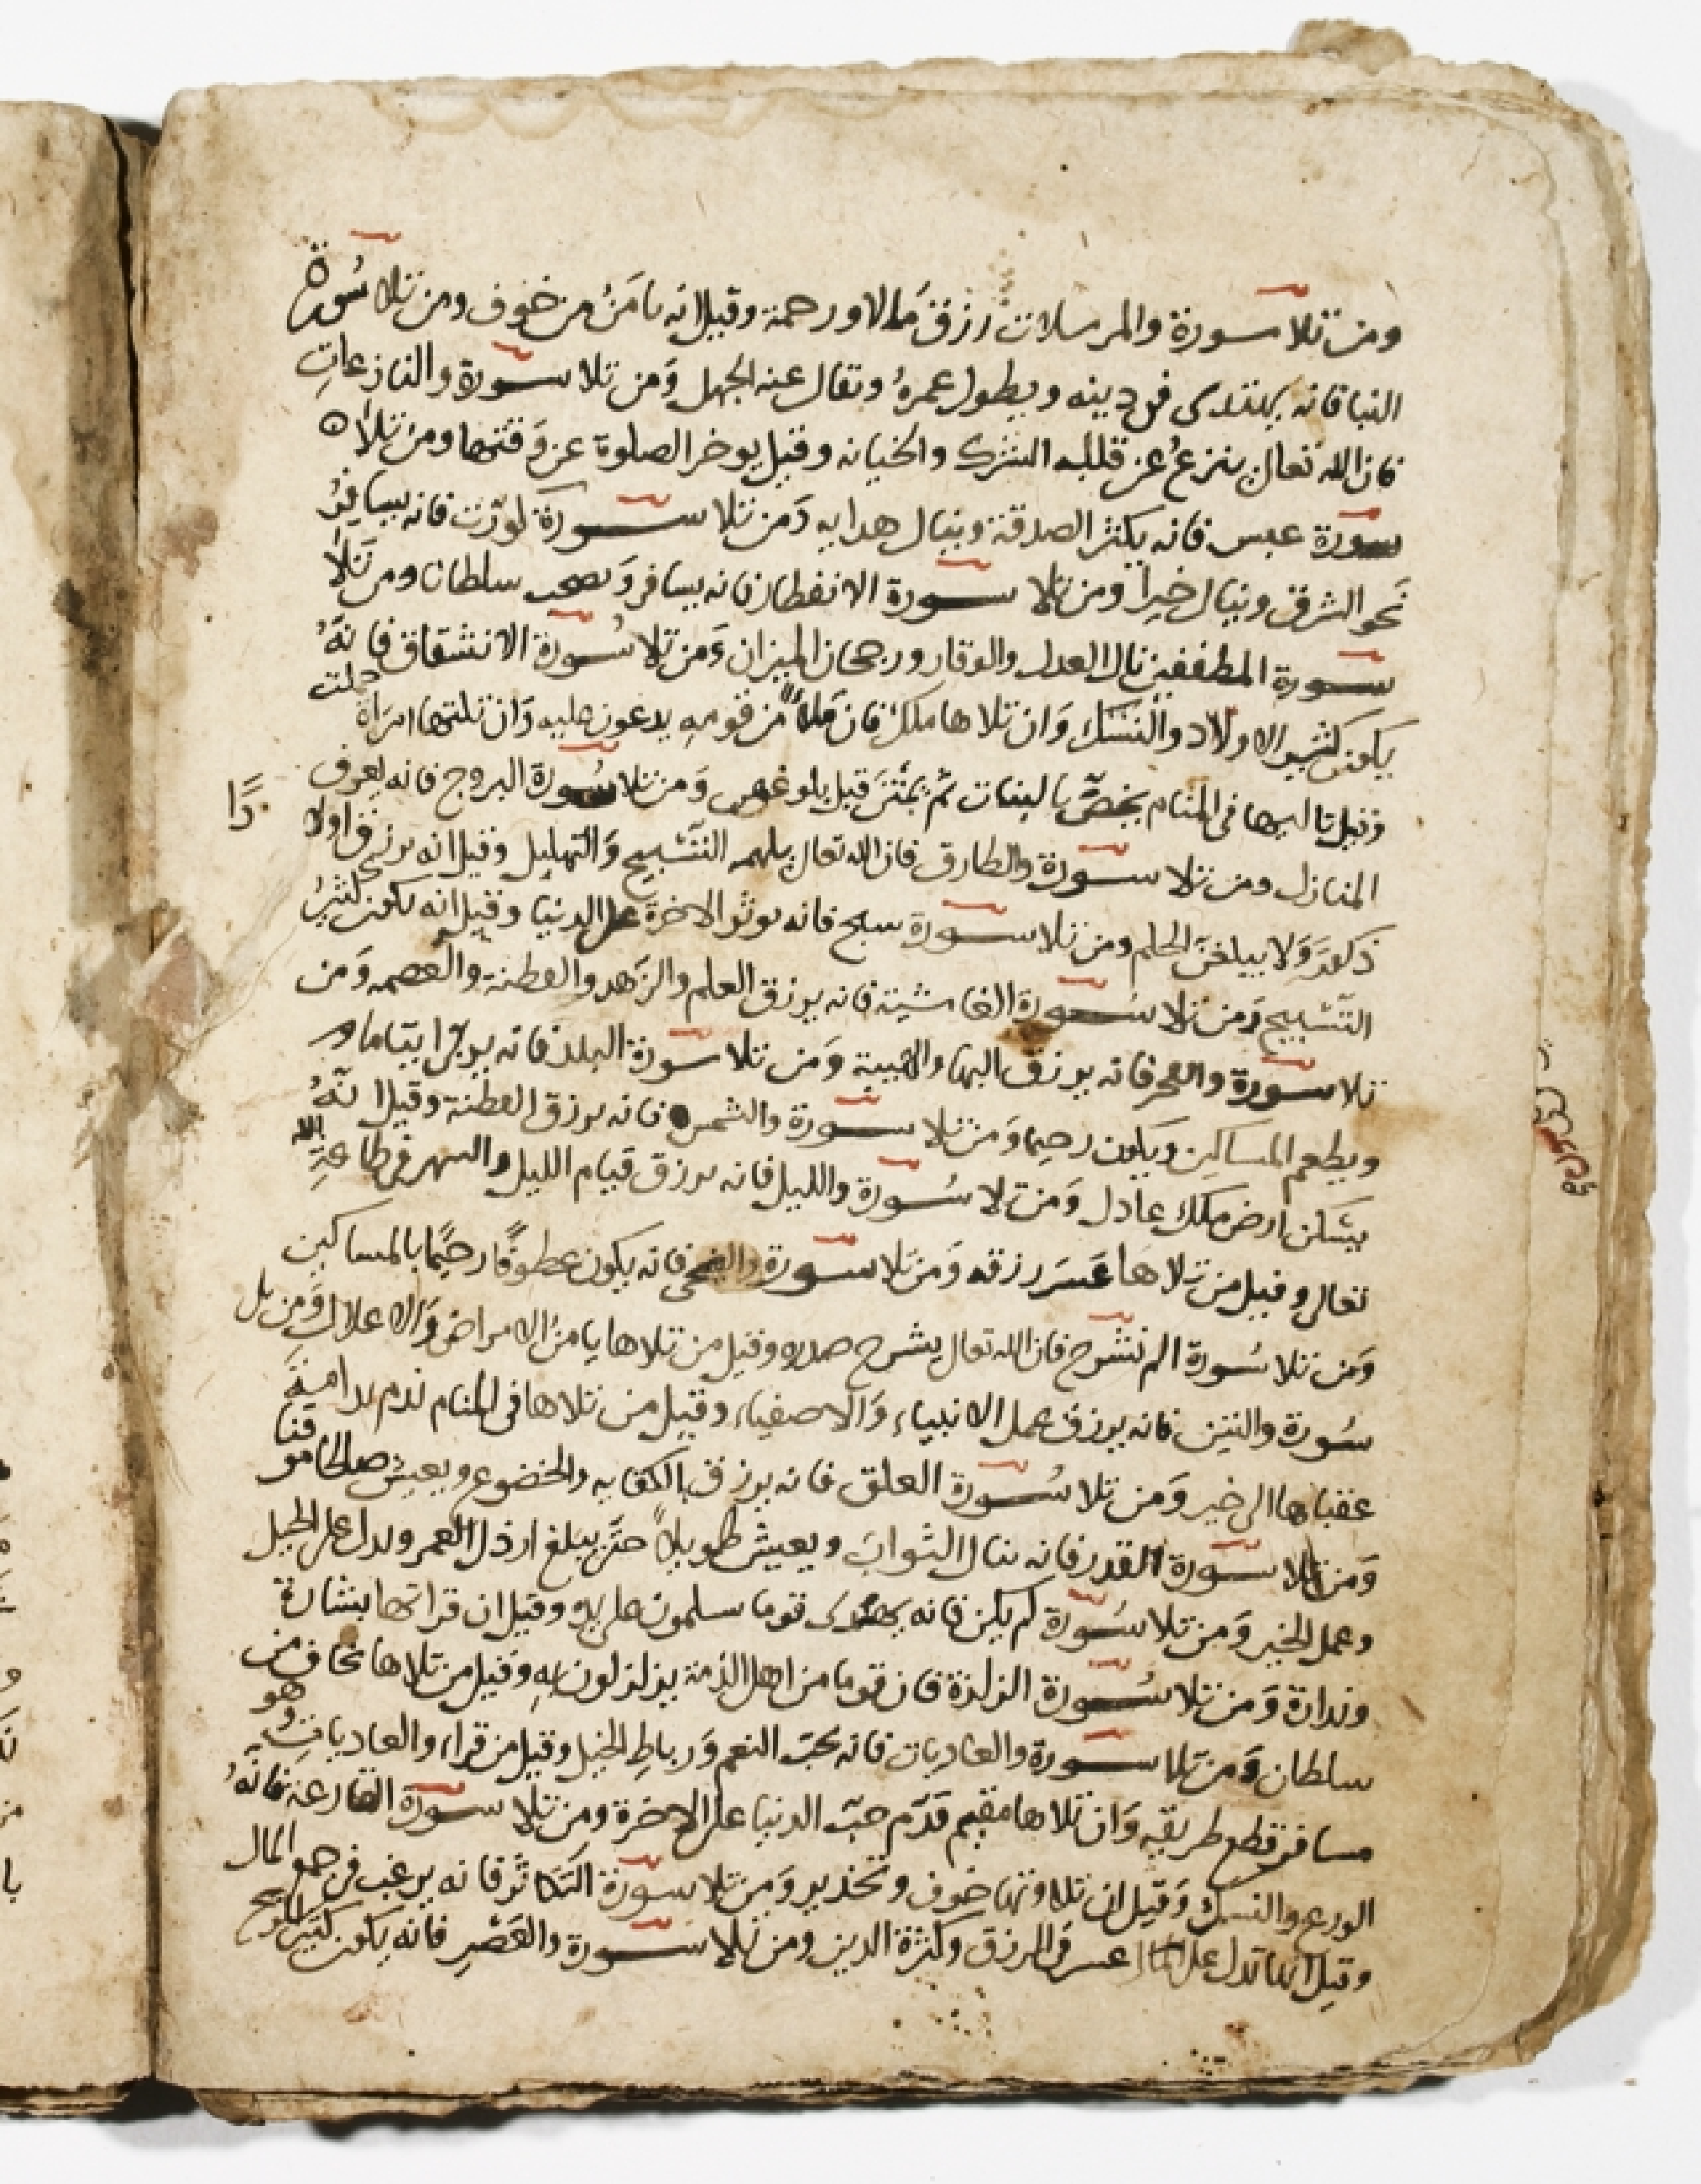 ومن تلا سورة والمرسلات رزق مالا ورحمة وقيل انه يامَنُ من خوف ومن تلا سُورة
النبا فانه يهتدى فى دينه ويطول عمرهُ وتقال عنه الجهل وَمن تلا سورة والنازعاتِ
فان الله تعالى ينزعُ عن قلبه الشرك والخيانه وقيل يوخر الصلوة عن وَقتها ومن تلا
سورة عبس فانه يكثر الصدقة وينال هدايه وَمن تلا سورة كورّت فانه يسافِرُ
نَحو الشرق وينال خيرا ومن تلا سورة الانفطار فانه يسافر وَيصحب سلطانا ومن تَلا
سورة المطففين نال العدل والوقار ورجحان الميزان وَمن تلا سُورة الانشقاق فانهُ
يكون كثير الاولاد والنسَك وَان تلاها ملك فان مَلأً من قومهِ يدعون عليه وَان تلتها امرَاة حملت
وقيل تاليها فى المنام يخصّ بالبنات ثم يمُتْنَ قبل بلوغهن وَمن تلا سُورة البروج فانه يعرف
المنازل ومن تلا سورة والطارق فان الله تعالى يلهمه التّسْبيح وَالتهليل وقيل انه يرزق اولا دًا
ذكورَ وَلا يبلغن الحلم ومن تلا سورة سبح فانه يوثر الاخرة على الدنيا وقيل انه يكون كثيرُ
التّسْبيح وَمن تلا سُورة الغاشية فانه يرزق العلم والزَهد والفطنة والعصمه وَمن
تلا سورة والفجر فانه يرزق البهاء والهيبة وَمن تلا سورة البلد فانه يربى ايتاما و
ويطعم المساكين وَيكون رحيما وَمن تلا سورة والشمس فانه يرزق الفطنة وقيل انّهُ
يسَكن ارض ملك عادل وَمن تلا سُورة والليل فانه يرزق قيام الليل والسهر فى طاعَةِ الله
تعالى وقيل من تلاها عَسَر رزقه وَمن تلا سورة والضحى فانه يكون عطوفًا رحيمًا بالمساكين
وَمن تلا سُورة الم نشرح فان الله تعالى يشرح صدره وقيل من تلاها يامنُ الامراض وَالاعلال وَمن تل
سُورة والتين فانه يرزق عمل الانبياء وَالاصفياء وقيل من تلاها فى المنام ندم
عقباها الى خير وَمن تلا سُورة العلق فانه يرزق بالكتابه والخضوع ويعيش صالحا موفقا
وَمن تلا سورة القدر فانه ينال الثوابَ ويعيش طويلاً حتى يبلغ ارذل العمر ويدل على الجيل
وعمل الخير وَمن تلا سُورة لم يكن فانه يهتدى قوما يسلمون على يده وقيل ان قراتها بشارة
ونذارة وَمن تلا سُورة الزلزلة فان قوما من اهل الذمة يزلزلون بهِ وقيل من تلاها يخاف من
سلطان وَمن تلا سورة والعاديات فانه يحبّ النعم وَرباطِ الخيل وقيل من قراء والعادياتِ وهو
مسافر قطع طريقه وَان تلاها مقيم قدَّم حبّ الدنيا على الاخرة ومن تلا سورة القارعة فانهُ
الورع والنسك وَقيل ان تلاوتها خوف وتحذير وَمن تلا سورة التكاثر فانه يرغب فى جمع المال
وقيل انها تدل على عسر فى الرزق وكثرة الدين ومن تلا سورة والعَصْرِ فانه يكون كثير الربح